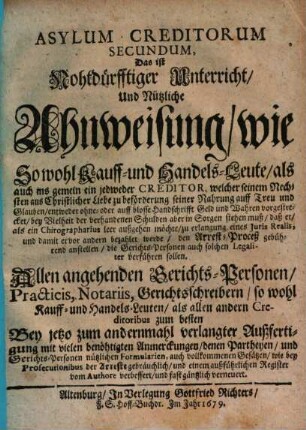 ASYLUM CREDITORUM
SECUNDUM,
Das ist
Nohtdürfftiger Unterricht/
Und Nützliche
Anweisung/wie
So wohl Kauff-und Handels-Leute/als
auch ins gemein ein jedweder CREDITOR, welcher seinem Nech
sten aus Christlicher Liebe zu beförderung seiner Nahrung auff Treu und
Glauben/entweder ohne/oder auff blosse Handschrifft Geld und Wahren vorgestre-
cket/ bey Vielheit der verhandenen Schulden aber in Sorgen stehen muß/ daß er/
als ein Chirographarius leer außgehen möchte/zu erlangung eines Juris Realis,
und damit er vor andern bezahlet werde / den Arrest-Proceß gebüh-
rend anstellen / die Gerichts-Personen auch solchen Legali-
ter verführen sollen.
Allen angehenden Gerichts-Personen/
Practicis, Notariis, Gerichtsschreibern/ so wohl
Kauff-und Handels-Leuten/ als allen andern Cre-
ditoribus zum besten
Bey jetzo zum andernmahl verlangter Außferti-
gung mit vielen benöhtigten Anmerckungen/denen Partheyen/ und
Gerichts-Personen nützlichen Formularien, auch vollkommenen Gesätzen/ wie bey
Prosecutionibus der Arreste gebräuchlich/und einem außführlichen Register
vom Authore verbessert/und fast gäntzlich verneuert.
Altenburg/ In Verlegung Gottfried Richters/
F. S. Hoff-Buchdr. Im Jahr 1679.